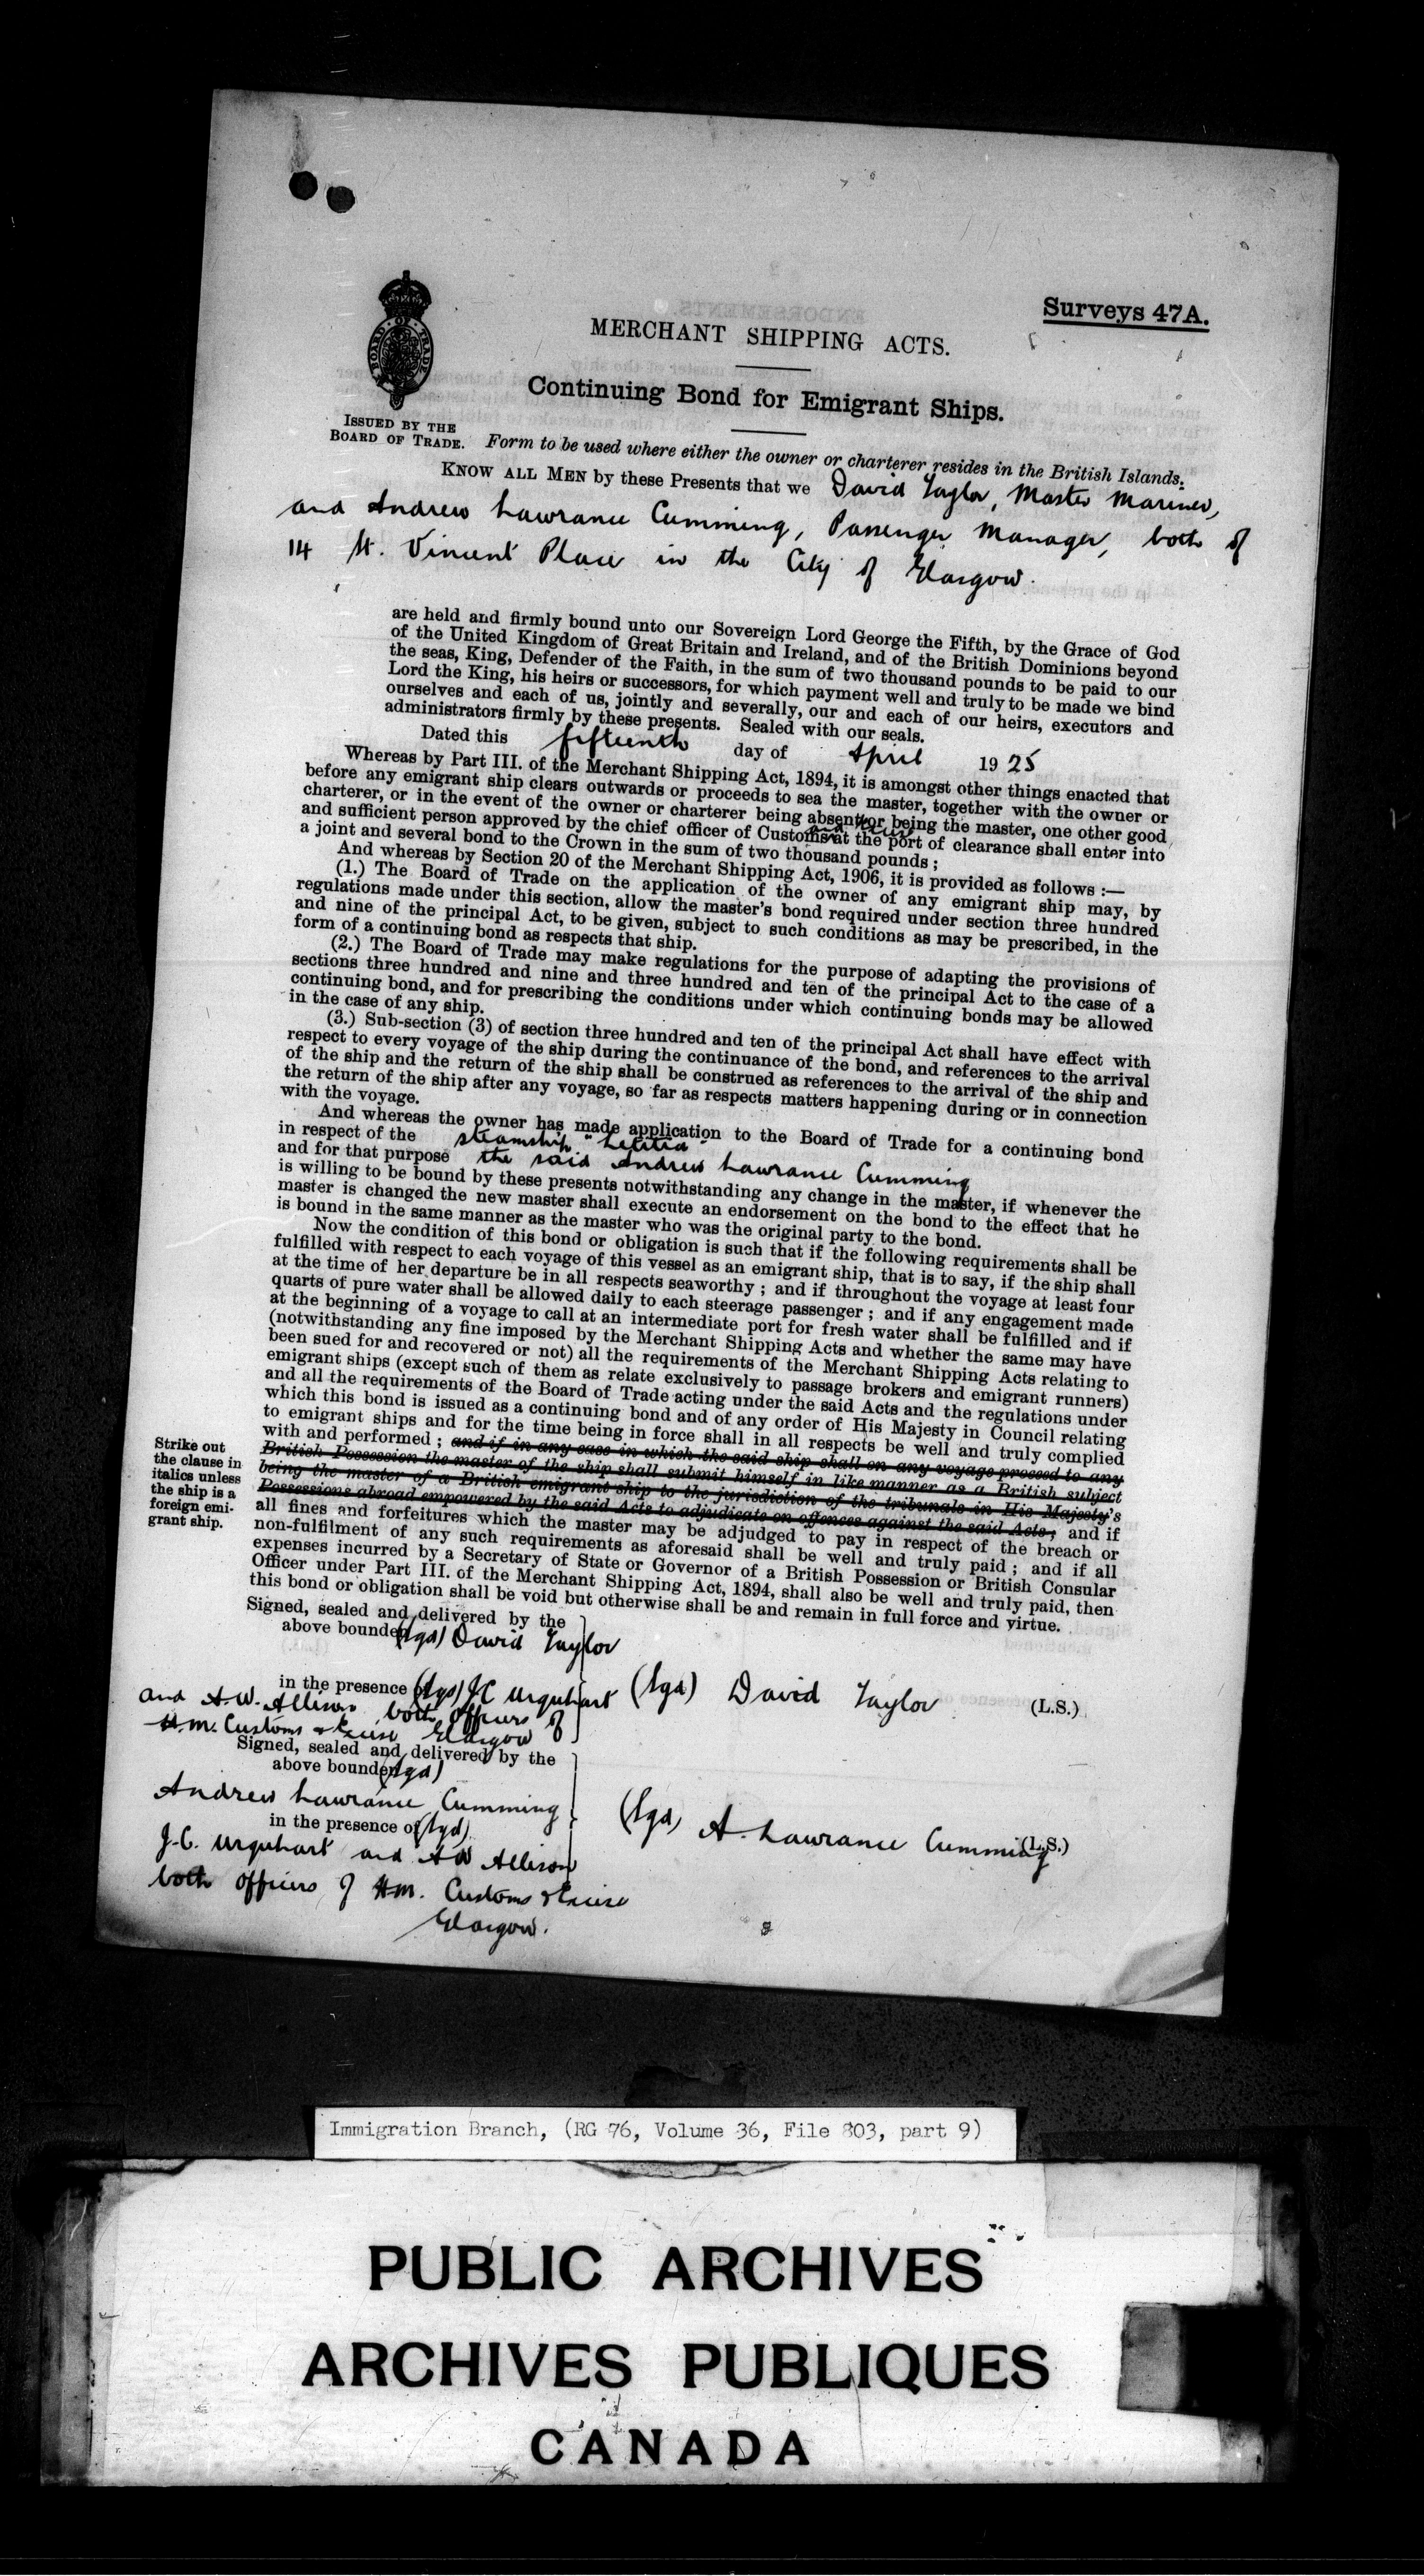 Surveys 47A.
MERCHANT SHIPPING ACTS.
Continuing Bond for Emigrant Ships.
BOARD OF TRADE
ISSUED BY THE
BOARD OF TRADE.
Form to be used where either the owner or charterer resides in the British Islands.
KNOW ALL MEN by these Presents that we David Taylor, Master Mariner,
and Andrew Lawrance Cumming, Passenger Manager, both of
14 St. Vincent Place in the City of Glasgow.
are held and firmly bound unto our Sovereign Lord George the Fifth, by the Grace of God
of the United Kingdom of Great Britain and Ireland, and of the British Dominions beyond
the seas, King, Defender of the Faith, in the sum of two thousand pounds to be paid to our
Lord the King, his heirs or successors, for which payment well and truly to be made we bind
ourselves and each of us, jointly and severally, our and each of our heirs, executors and
administrators firmly by these presents. Sealed with our seals.
Dated this fifteenth day of April 1925
Whereas by Part III. of the Merchant Shipping Act, 1894, it is amongst other things enacted that
before any emigrant ship clears outwards or proceeds to sea the master, together with the owner or
charterer, or in the event of the owner or charterer being absent or being the master, one other good
and sufficient person approved by the chief officer of Customs and Excise at the port of clearance shall enter into
a joint and several bond to the Crown in the sum of two thousand pounds ;
And whereas by Section 20 of the Merchant Shipping Act, 1906, it is provided as follows :—
(1.) The Board of Trade on the application of the owner of any emigrant ship may, by
regulations made under this section, allow the master's bond required under section three hundred
and nine of the principal Act, to be given, subject to such conditions as may be prescribed, in the
form of a continuing bond as respects that ship.
(2.) The Board of Trade may make regulations for the purpose of adapting the provisions of
sections three hundred and nine and three hundred and ten of the principal Act to the case of a
continuing bond, and for prescribing the conditions under which continuing bonds may be allowed
in the case of any ship.
(3.) Sub-section (3) of section three hundred and ten of the principal Act shall have effect with
respect to every voyage of the ship during the continuance of the bond, and references to the arrival
of the ship and the return of the ship shall be construed as references to the arrival of the ship and
the return of the ship after any voyage, so far as respects matters happening during or in connection
with the voyage.
And whereas the owner has made application to the Board of Trade for a continuing bond
in respect of the steamship "Letitia"
and for that purpose the said Andrew Lawrance Cumming
is willing to be bound by these presents notwithstanding any change in the master, if whenever the
master is changed the new master shall execute an endorsement on the bond to the effect that he
is bound in the same manner as the master who was the original party to the bond.
Now the condition of this bond or obligation is such that if the following requirements shall be
fulfilled with respect to each voyage of this vessel as an emigrant ship, that is to say, if the ship shall
at the time of her departure be in all respects seaworthy ; and if throughout the voyage at least four
quarts of pure water shall be allowed daily to each steerage passenger ; and if any engagement made
at the beginning of a voyage to call at an intermediate port for fresh water shall be fulfilled and if
(notwithstanding any fine imposed by the Merchant Shipping Acts and whether the same may have
been sued for and recovered or not) all the requirements of the Merchant Shipping Acts relating to
emigrant ships (except such of them as relate exclusively to passage brokers and emigrant runners)
and all the requirements of the Board of Trade acting under the said Acts and the regulations under
which this bond is issued as a continuing bond and of any order of His Majesty in Council relating
to emigrant ships and for the time being in force shall in all respects be well and truly complied
with and performed ; and if in any case in which the said ship shall on any voyage proceed to any
British Possession the master of the ship shall submit himself in like manner as a British subject
being the master of a British emigrant ship to the jurisdiction of the tribunals in His Majesty's
Possessions abroad empowered by the said Acts to adjudicate on offences against the said Acts ; and if
all fines and forfeitures which the master may be adjudged to pay in respect of the breach or
non-fulfilment of any such requirements as aforesaid shall be well and truly paid ; and if all
expenses incurred by a Secretary of State or Governor of a British Possession or British Consular
Officer under Part III. of the Merchant Shipping Act, 1894, shall also be well and truly paid, then
this bond or obligation shall be void but otherwise shall be and remain in full force and virtue.
Strike out
the clause in
italics unless
the ship is a
foreign emi-
grant ship.
Signed, sealed and delivered by the
above bounden (Sgd) David Taylor
in the presence of (Sgd) J.C Urquhart
and A.W. Allison both officers of
H.M. Customs & Excise Glasgow
(Sgd) David Taylor (L.S.)
Signed, sealed and delivered by the
above bounden (Sgd)
Andrew Lawrance Cumming
in the presence of (Sgd)
J.C. Urquhart and A W Allison
both officers of H.M. Customs & Excise
Glasgow.
(Sgd) A. Lawrance Cumming (L.S.)
Immigration Branch, (RG 76, Volume 36, File 803, part 9)
PUBLIC ARCHIVES
ARCHIVES PUBLIQUES
CANADA